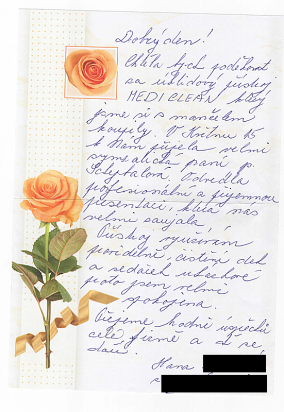 Dobrý den!
Chtěla bych poděkovat
za úklidový přístroj
MEDICLEAN který
jsme si s manželem
koupily. V Květnu 15
k Nám přijela velmi
sympatická paní p.
Odvedla
profesionální a příjemnou
presentaci, která nás
velmi zaujala.
Přístroj využívám
pravidelně, čistění dek
a sedaček
jsem velmi
spokojena.
Přejeme hodně úspěchů
celé firmě a ať se
daří.
Hana